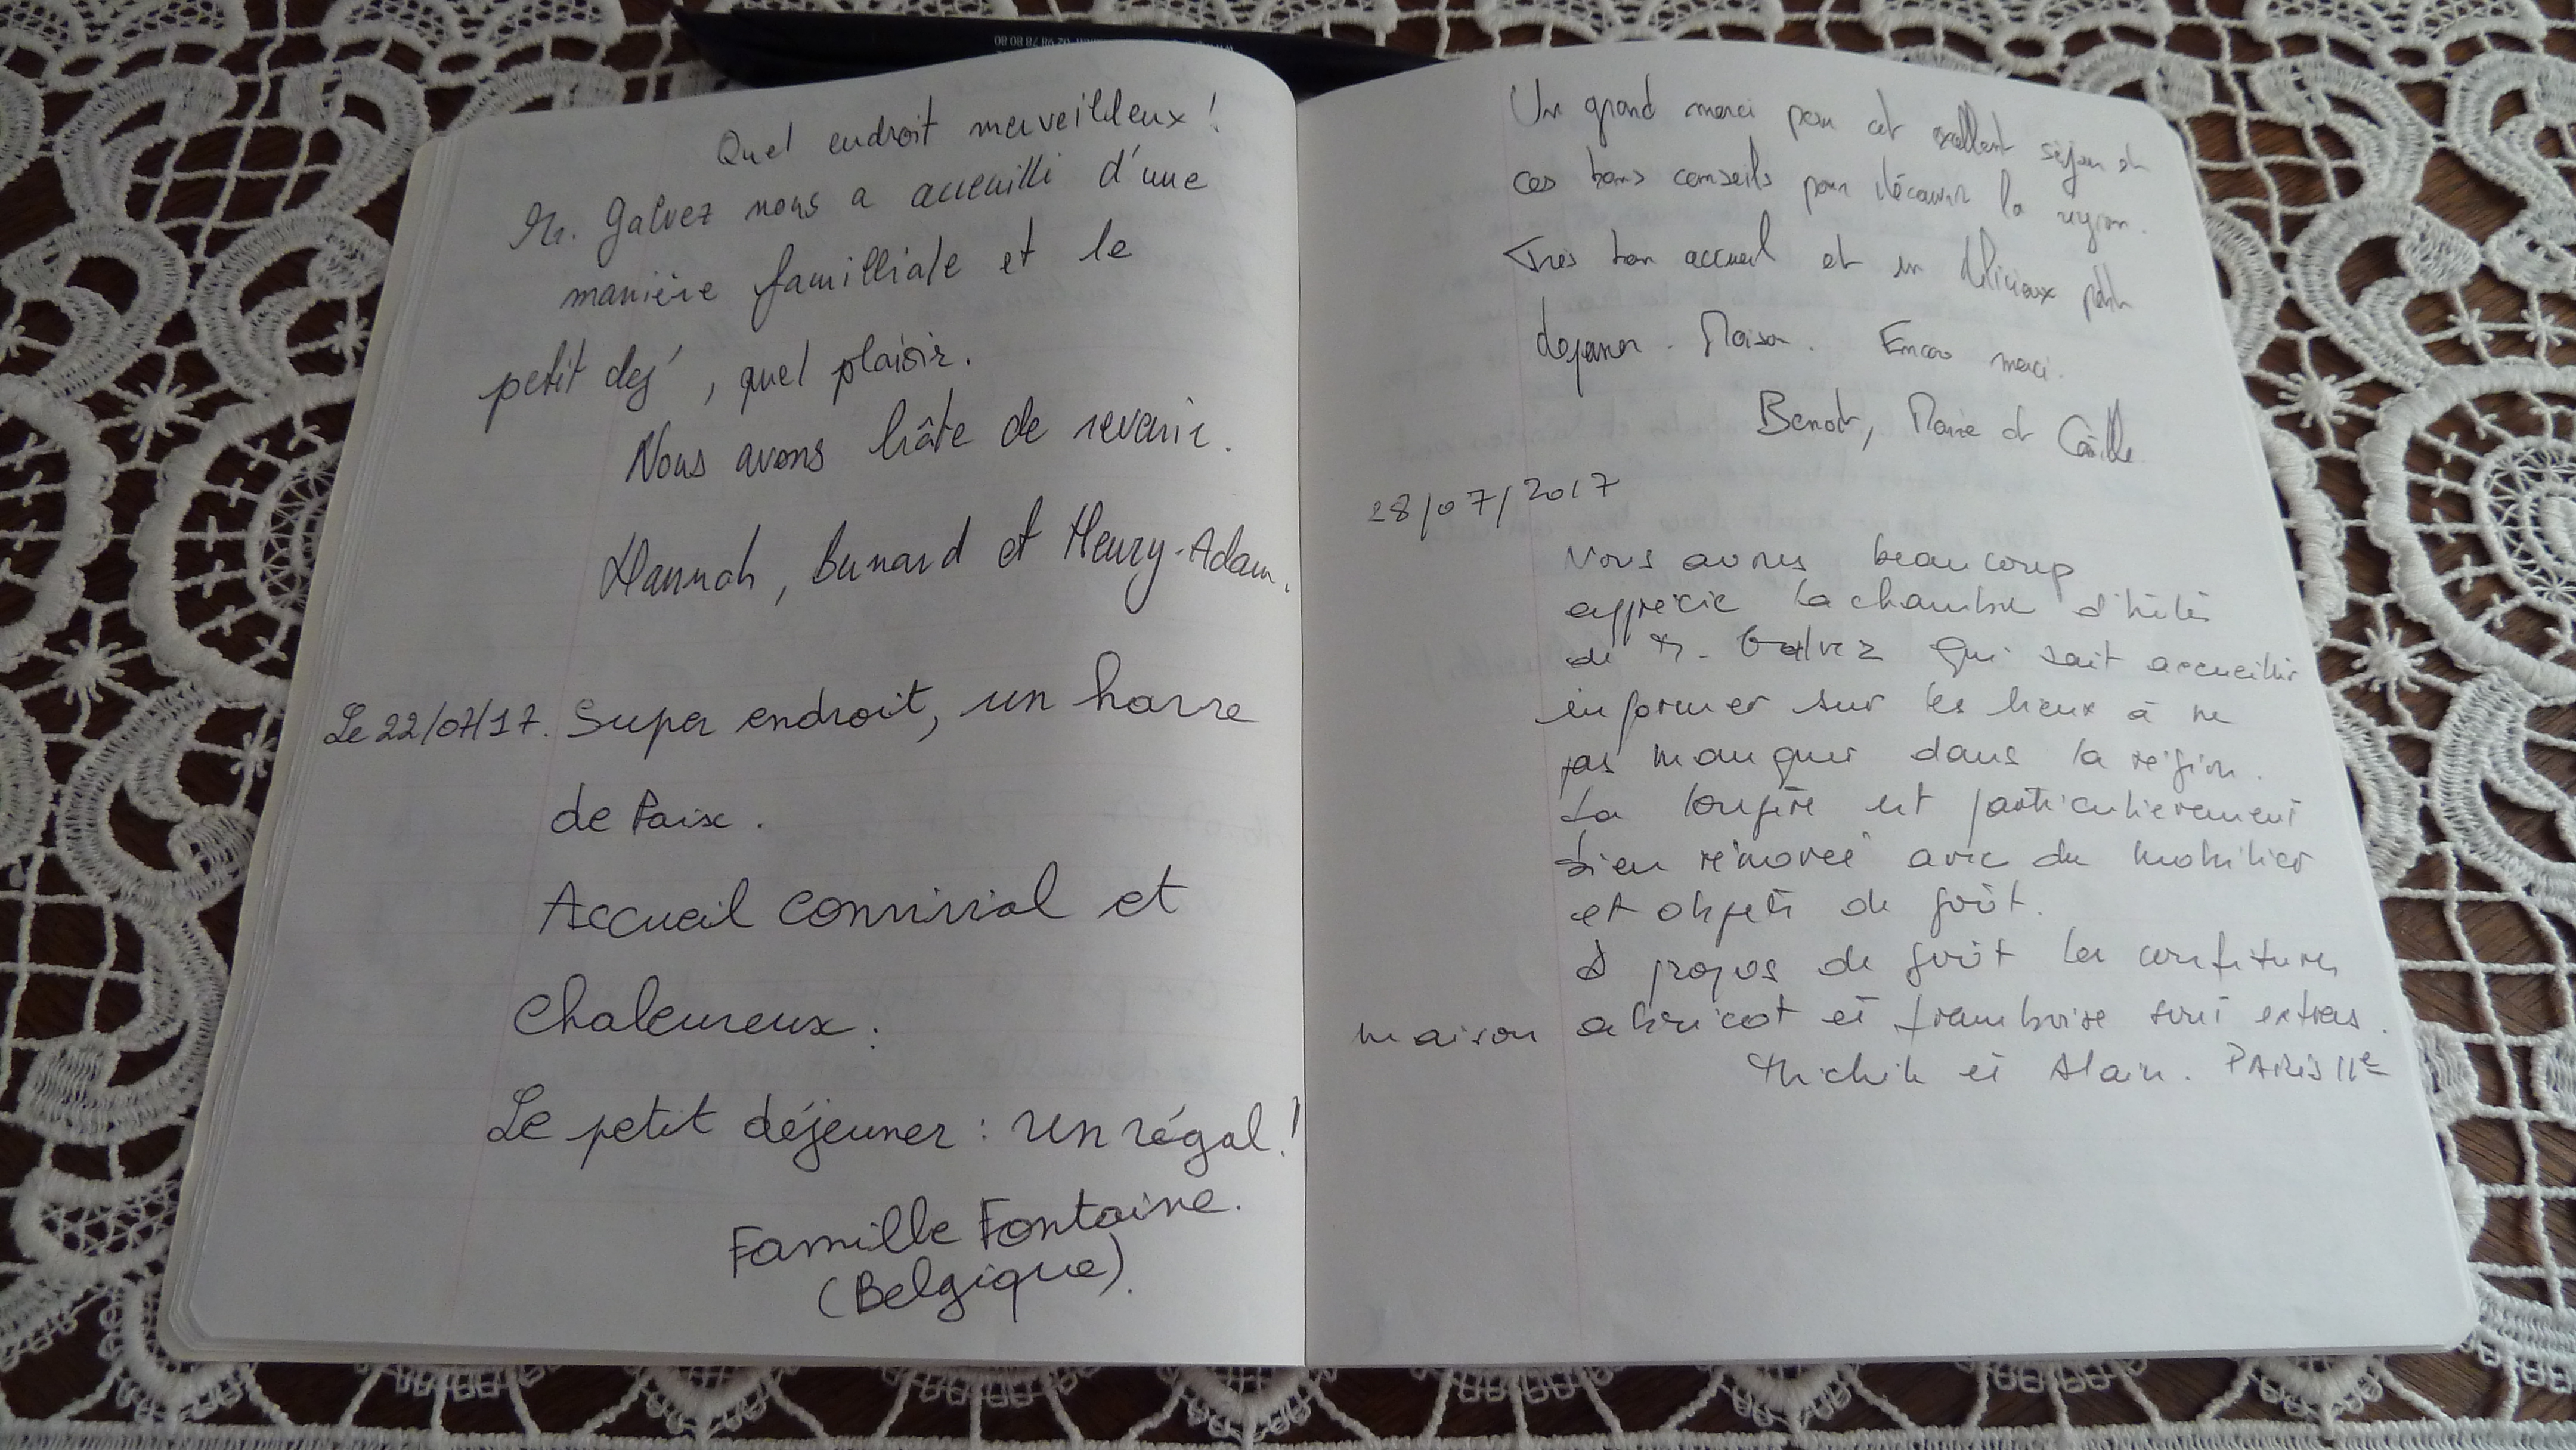 Quel endroit merveilleux !
Mr. Galvez nous a accueilli d'une
manière familliale et le
petit dej', quel plaisir.
Nous avons hâte de revenir.
Hannah, Bernard et Henry-Adam.
Le 22/07/17. Super endroit, un havre
de Paix.
Accueil convivial et
chaleureux.
Le petit déjeuner : un régal !
Famille Fontaine.
(Belgique).
Un grand merci pour cet excellent séjour et
ces bons conseils pour découvrir la région.
Très bon accueil et un délicieux petit
dejeuner. Maison. Encore merci.
Benoit, Marie et
28/07/2017
Nous avons beaucoup
apprécié la chambre d'hôtes
de M. Galvez qui sait accueillir
informer sur les lieux à ne
pas manquer dans la région.
La longère est particulièrement
bien rénovée avec du mobilier
et objets de goût.
A propos de goût les confitures
maison abricot et framboise sont extras.
Michèle et Alain. PARIS 11e